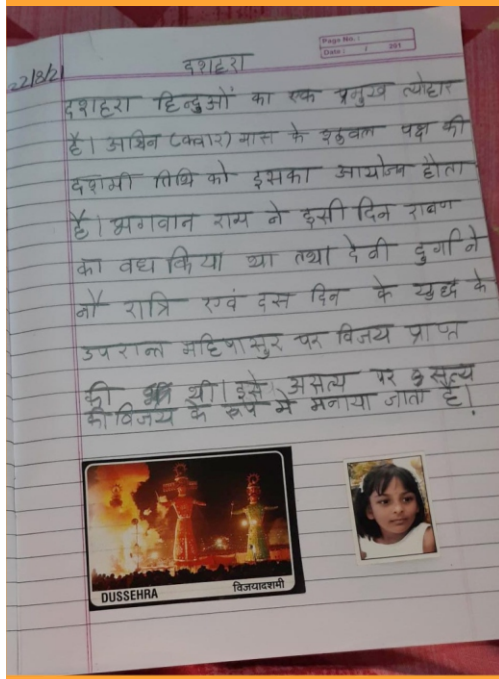 Page No.:
Date: / 201
22/8/21
दशहरा
दशहरा हिन्दुओं का एक प्रमुख त्योहार
है। आश्विन (क्वार) मास के शुक्ल पक्ष की
दशमी तिथि को इसका आयोजन होता
है। भगवान राम ने इसी दिन रावण
का वध किया था तथा देवी दुर्गा ने
नौ रात्रि एवं दस दिन के युद्ध के
उपरान्त महिषासुर पर विजय प्राप्त
की थी। इसे असत्य पर सत्य
की विजय के रूप में मनाया जाता है।
DUSSEHRA विजयादशमी